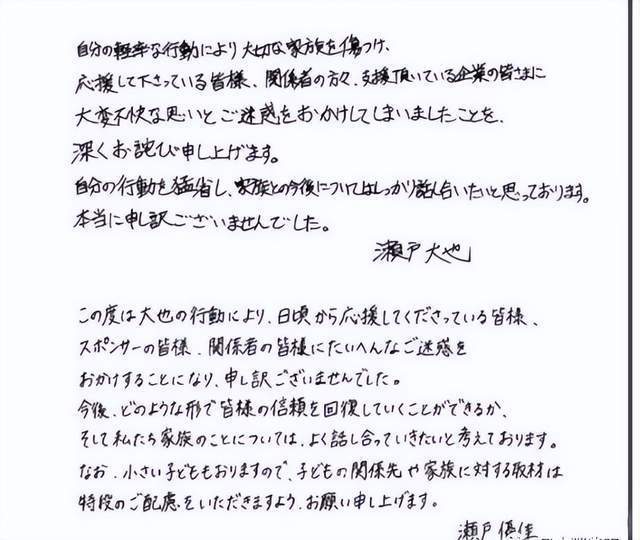 自分の軽率な行動により大切な家族を傷つけ、
応援して下さっている皆様、関係者の方々、支援頂いている企業の皆さまに
大変不快な思いとご迷惑をおかけしてしまいましたことを、
深くお詫び申し上げます。
自分の行動を猛省し、家族との今後についてはしっかり話し合いたいと思っております。
本当に申し訳ございませんでした。
瀬戸大也
この度は大也の行動により、日頃から応援してくださっている皆様、
スポンサーの皆様、関係者の皆様にたいへんなご迷惑を
おかけすることになり、申し訳ございませんでした。
今後、どのような形で皆様の信頼を回復していくことができるか、
そして私たち家族のことについては、よく話し合っていきたいと考えております。
なお、小さい子どももおりますので、子どもの関係先や家族に対する取材は
特段のご配慮をいただきますよう、お願い申し上げます。
瀬戸優佳